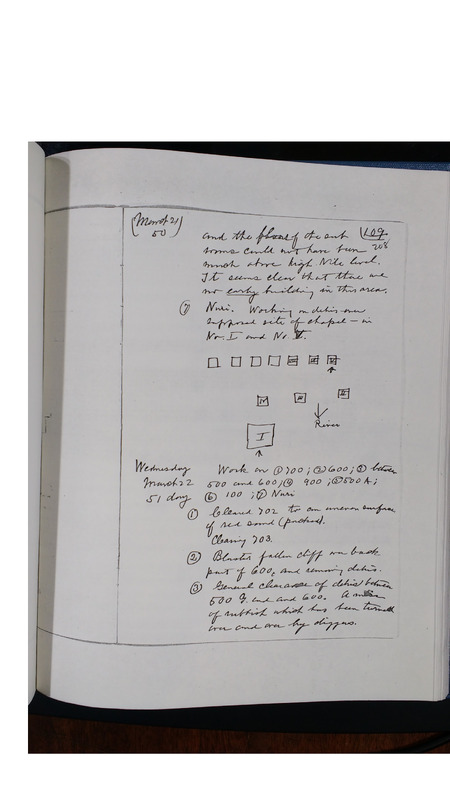 (March 21)
50
and the floor of the sub
LOG
208
rooms could not have been
much above high Nile level.
It seems clear that there are
no early building in this area.
⑦ Nuri. Working on debris over
supposed site of chapel – in
No. I and No. V.
IV III II
River
I
Wednesday
March 22
51 day
Work on ① 700; ② 600; ③ between
500 and 600; ④ 900; ⑤ 500A;
⑥ 100; ⑦ Nuri
① Cleared 702 to an uneven surface
of red sand
Clearing 703.
② Blaster fallen cliff over back
part of 600, and removing debris.
③ General clearance of debris between
500 and 600. A
of rubbish which has been turned
over and over by diggers.